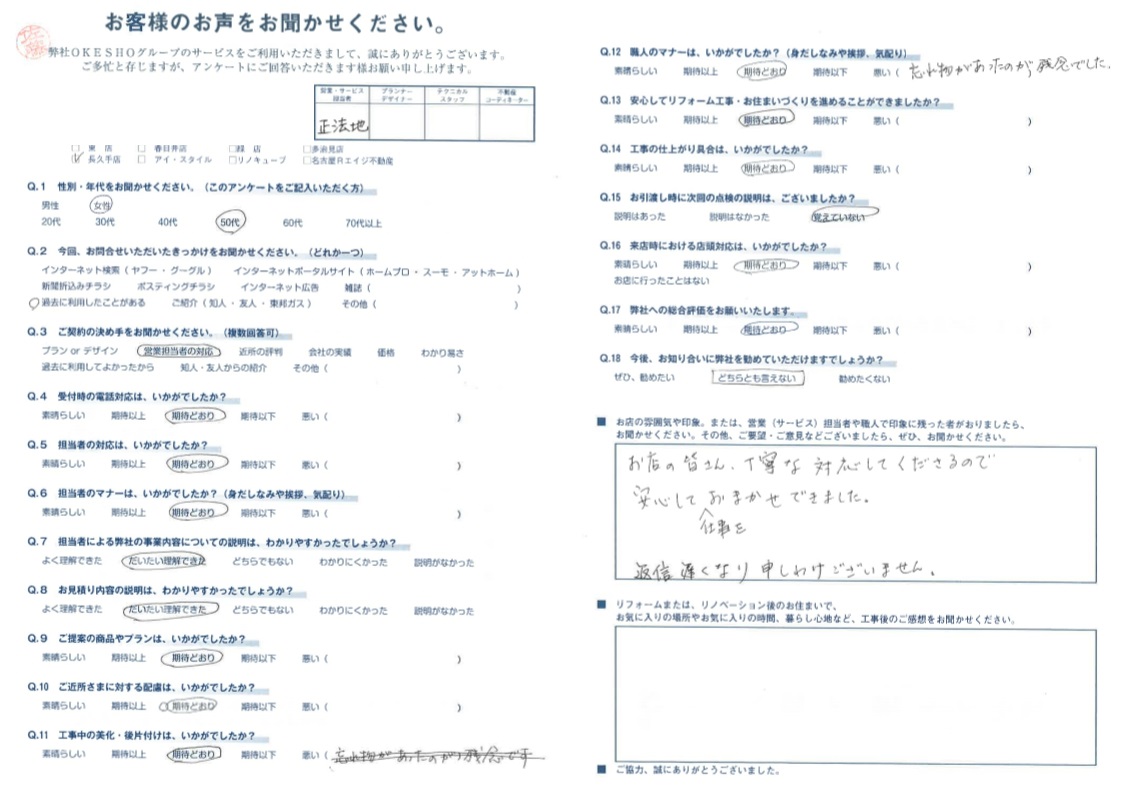 お客様のお声をお聞かせください。
弊社OKESHOグループのサービスをご利用いただきまして、誠にありがとうございます。
ご多忙と存じますが、アンケートにご回答いただきます様お願い申し上げます。
営業・サービス担当者 プランナーデザイナー テクニカルスタッフ 不動産コーディネーター
正法地
□ 東 店 □ 春日井店 □緑 店 □多治見店
☑ 長久手店 □ アイ・スタイル □リノキューブ □名古屋Rエイジ不動産
Q.1 性別・年代をお聞かせください。(このアンケートをご記入いただく方)
男性 女性
20代 30代 40代 50代 60代 70代以上
Q.2 今回、お問合せいただいたきっかけをお聞かせください。(どれか一つ)
インターネット検索(ヤフー・グーグル) インターネットポータルサイト(ホームプロ・スーモ・アットホーム)
新聞折込みチラシ ポスティングチラシ インターネット広告 雑誌( )
過去に利用したことがある ご紹介(知人・友人・東邦ガス) その他( )
Q.3 ご契約の決め手をお聞かせください。(複数回答可)
プラン or デザイン 営業担当者の対応 近所の評判 会社の実績 価格 わかり易さ
過去に利用してよかったから 知人・友人からの紹介 その他( )
Q.4 受付時の電話対応は、いかがでしたか?
素晴らしい 期待以上 期待どおり 期待以下 悪い( )
Q.5 担当者の対応は、いかがでしたか?
素晴らしい 期待以上 期待どおり 期待以下 悪い( )
Q.6 担当者のマナーは、いかがでしたか?(身だしなみや挨拶、気配り)
素晴らしい 期待以上 期待どおり 期待以下 悪い( )
Q.7 担当者による弊社の事業内容についての説明は、わかりやすかったでしょうか?
よく理解できた だいたい理解できた どちらでもない わかりにくかった 説明がなかった
Q.8 お見積り内容の説明は、わかりやすかったでしょうか?
よく理解できた だいたい理解できた どちらでもない わかりにくかった 説明がなかった
Q.9 ご提案の商品やプランは、いかがでしたか?
素晴らしい 期待以上 期待どおり 期待以下 悪い( )
Q.10 ご近所さまに対する配慮は、いかがでしたか?
素晴らしい 期待以上 期待どおり 期待以下 悪い( )
Q.11 工事中の美化・後片付けは、いかがでしたか?
素晴らしい 期待以上 期待どおり 期待以下 悪い( 忘れ物があったのが残念です
Q.12 職人のマナーは、いかがでしたか?(身だしなみや挨拶、気配り)
素晴らしい 期待以上 期待どおり 期待以下 悪い( 忘れ物があったのが残念でした。
Q.13 安心してリフォーム工事・お住まいづくりを進めることができましたか?
素晴らしい 期待以上 期待どおり 期待以下 悪い( )
Q.14 工事の仕上がり具合は、いかがでしたか?
素晴らしい 期待以上 期待どおり 期待以下 悪い( )
Q.15 お引渡し時に次回の点検の説明は、ございましたか?
説明はあった 説明はなかった 覚えていない
Q.16 来店時における店頭対応は、いかがでしたか?
素晴らしい 期待以上 期待どおり 期待以下 悪い( )
お店に行ったことはない
Q.17 弊社への総合評価をお願いいたします。
素晴らしい 期待以上 期待どおり 期待以下 悪い( )
Q.18 今後、お知り合いに弊社を勧めていただけますでしょうか?
ぜひ、勧めたい どちらとも言えない 勧めたくない
■ お店の雰囲気や印象。または、営業(サービス)担当者や職人で印象に残った者がおりましたら、
お聞かせください。その他、ご要望・ご意見などございましたら、ぜひ、お聞かせください。
お店の皆さん、丁寧な対応してくださるので
安心して おまかせできました。
仕事を
返信遅くなり申しわけございません。
■ リフォームまたは、リノベーション後のお住まいで、
お気に入りの場所やお気に入りの時間、暮らし心地など、工事後のご感想をお聞かせください。
■ ご協力、誠にありがとうございました。